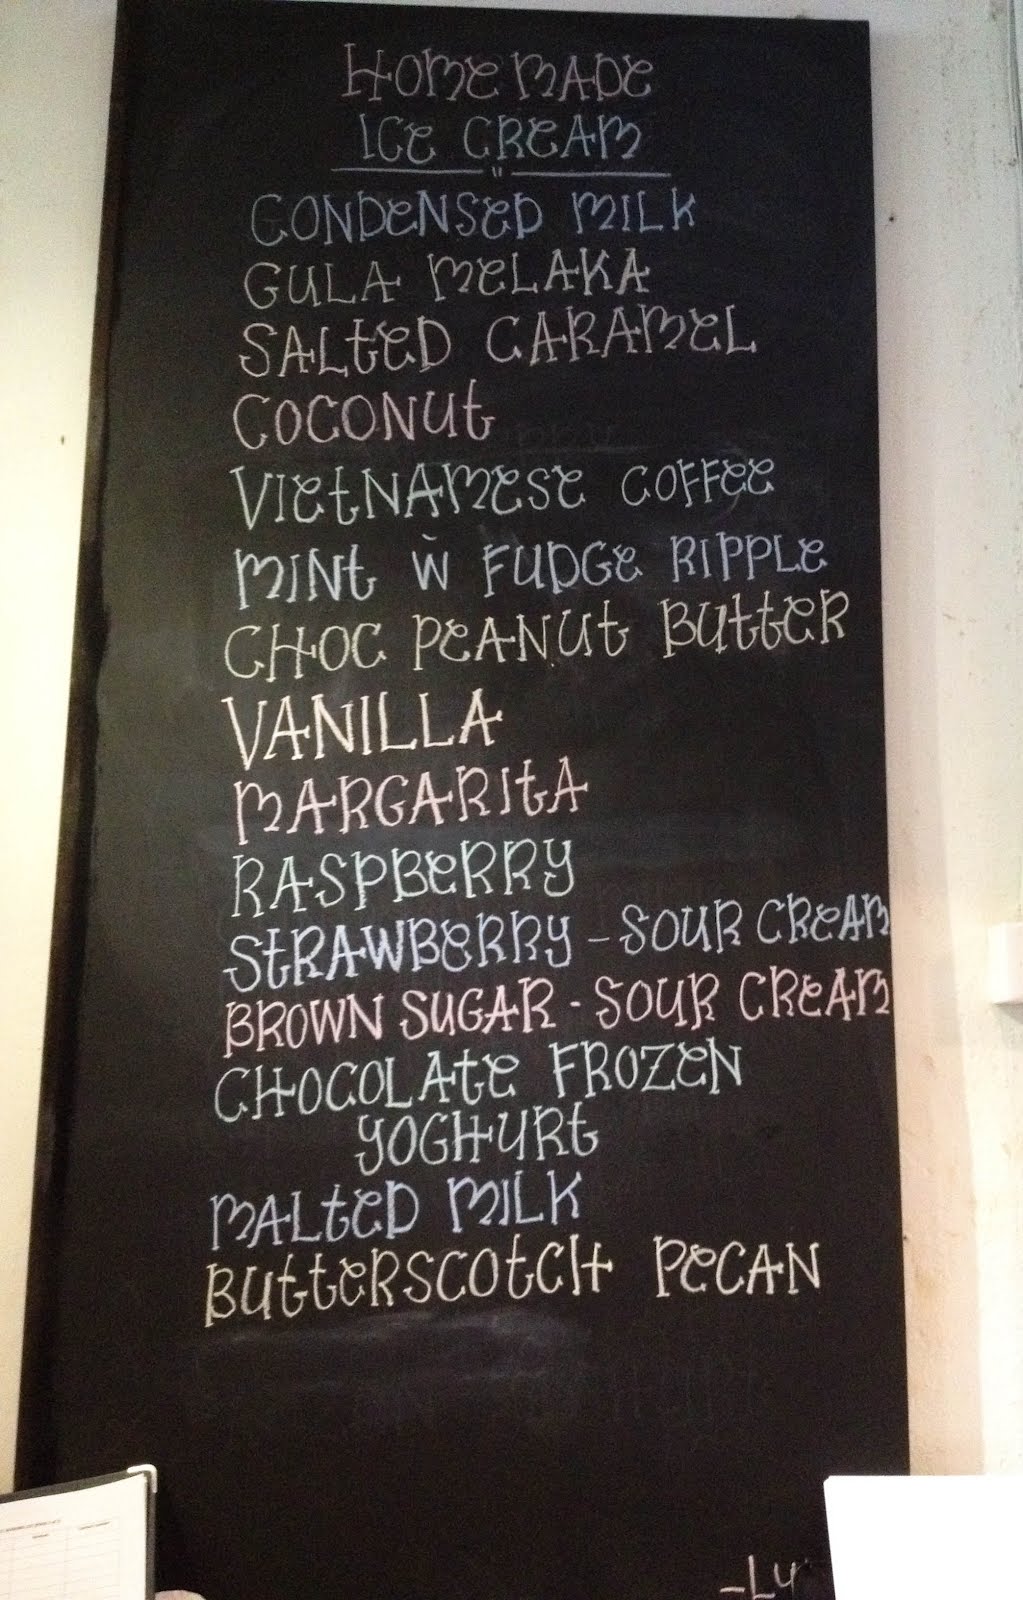 HOMEMADE
ICE CREAM
"
CONDENSED MILK
GULA MELAKA
SALTED CARAMEL
COCONUT
VIETNAMESE COFFEE
MINT W̃ FUDGE RIPPLE
CHOC PEANUT BUTTER
VANILLA
MARGARITA
RASPBERRY
STRAWBERRY - SOUR CREAM
BROWN SUGAR - SOUR CREAM
CHOCOLATE FROZEN
YOGHURT
MALTED MILK
BUTTERSCOTCH PECAN